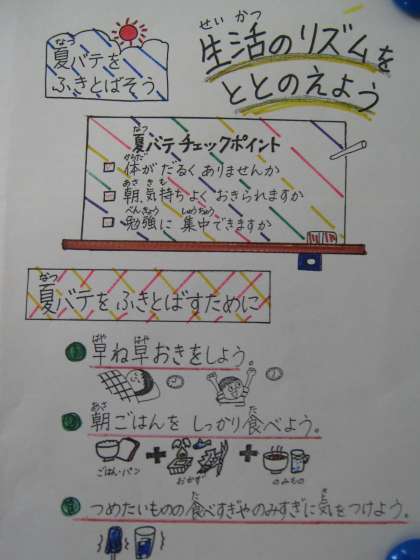 夏バテを
ふきとばそう
生活のリズムを
ととのえよう
夏バテチェックポイント
体がだるくありませんか
朝、気持ちよくおきられますか
勉強に集中できますか
夏バテをふきとばすために
草ね草おきをしよう。
朝ごはんをしっかり食べよう。
ごはん・パン
おかず
のみもの
つめたいものの食べすぎやのみすぎに気をつけよう。